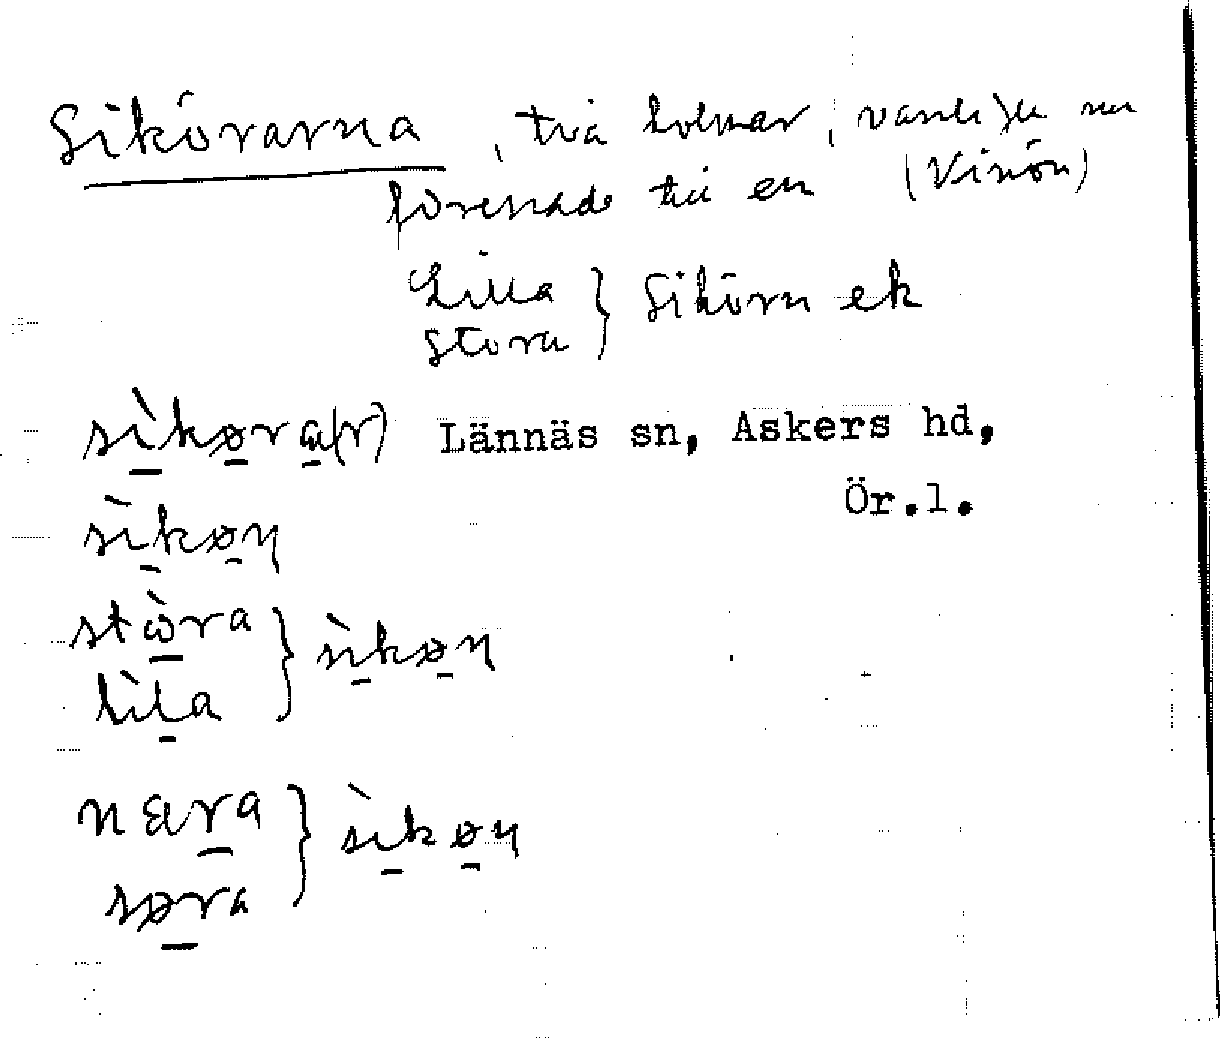 Sikörarna, två holmar, vanligen nu
förenade till en (Vinön)
Lilla } Sikörn ek
Stora
sìkøra(r) Lännäs sn, Askers hd,
Ör.l.
sìkøn
stòra } sìkøn
lìla
næra } sìkøn
søra